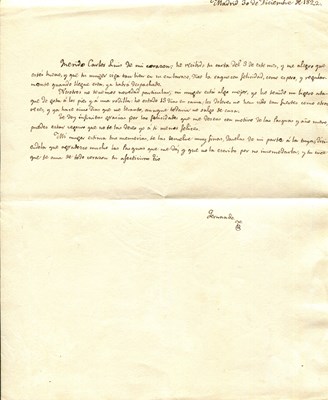 Madrid 30 de Diciembre de 1822.
Querido Carlos Luis de mi corazon; he recibido tu carta del 3 de este mes, y me alegro que
estés bueno, y que tu muger siga tan bien en su embarazo, Dios la saque con felicidad, como espero, y regularmente quando llegue esta, ya habrá despachado.
Nosotros no tenemos novedad particular; mi muger está algo mejor, yo he tenido un ligero ataque de gota á los pies y á una rodilla; he estado 13 dias en cama; los dolores no han sido tan fuertes como otras
veces, y ya hace cinco dias que me levanto, aunque todavia no salgo de casa.
Te doy infinitas gracias por las felicidades que me deseas con motivo de las Pasquas y año nuevo,
puedes estar seguro que no te las deseo yo á ti menos felices.
Mi muger estima tus memorias, te las devuelve muy finas, dáselas de mi parte á la tuya, diciendola que agradezco mucho las Pasquas que me dá, y que no la escribo por no incomodarla; y tu cree
que te ama de todo corazon tu afectisimo tio
Fernando